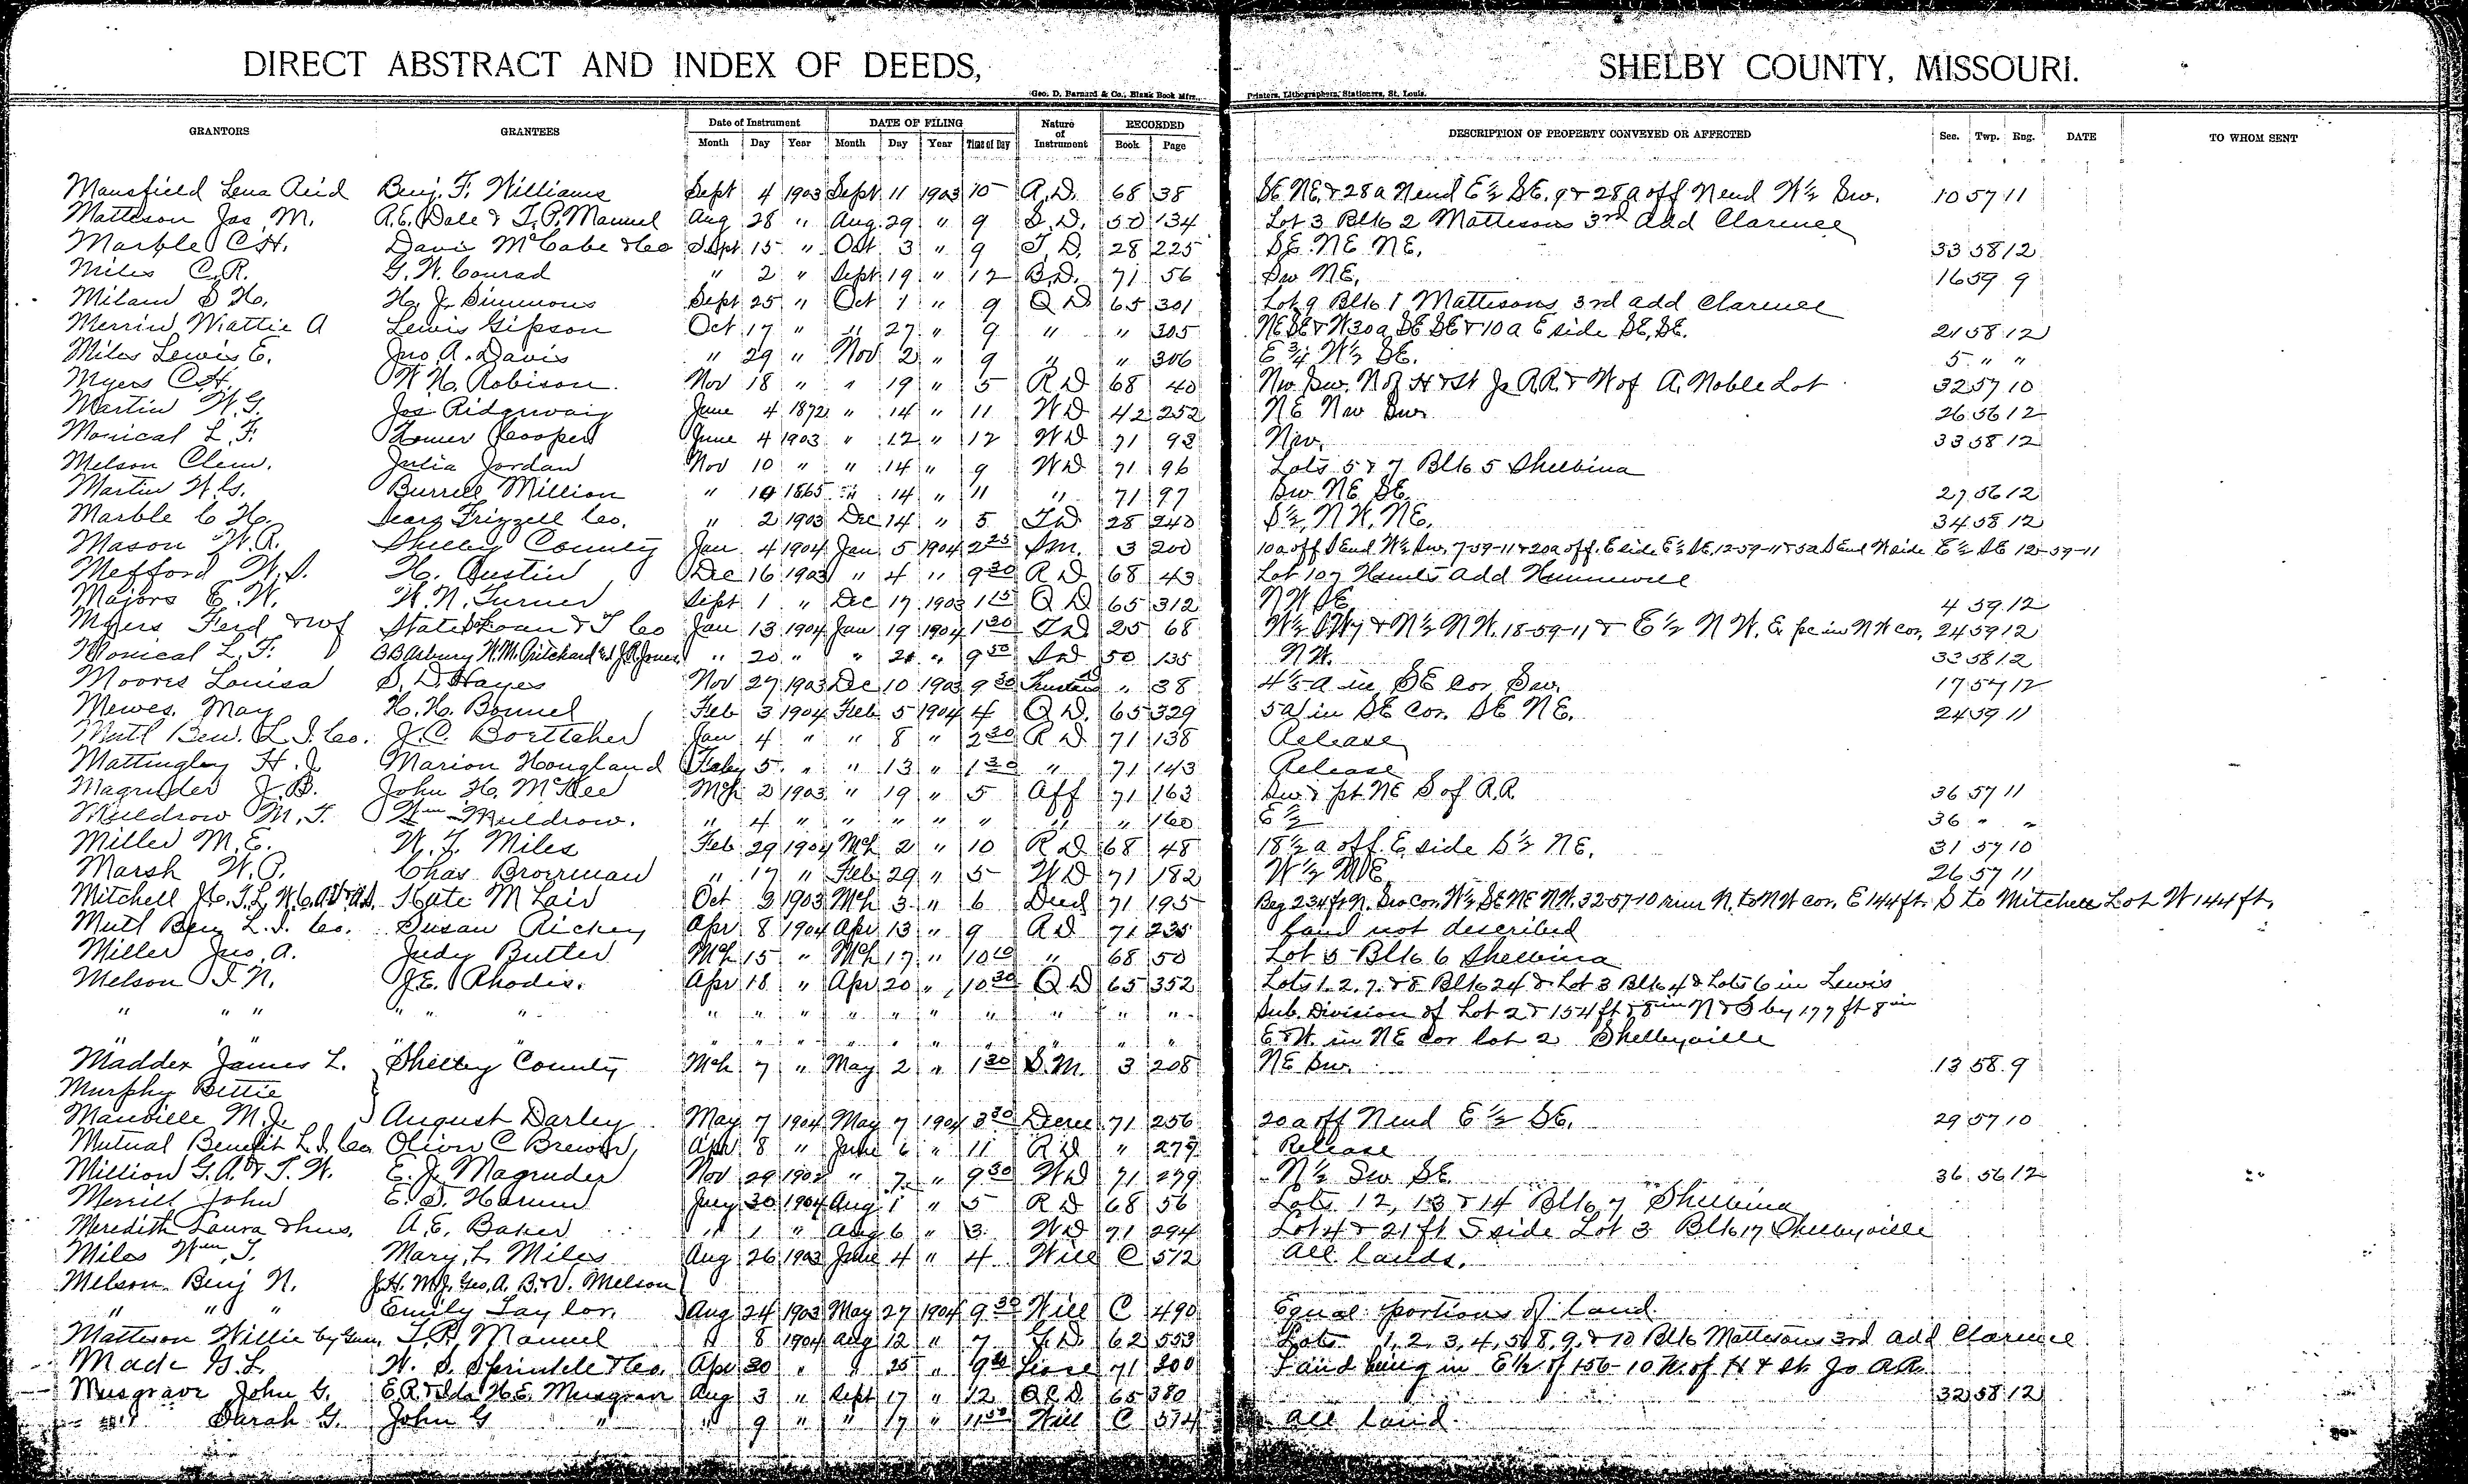 DIRECT ABSTRACT AND INDEX OF DEEDS, SHELBY COUNTY, MISSOURI.
Geo. D. Barnard & Co., Blank Book Mfrs., Printers, Lithographers, Stationers, St. Louis.
GRANTORS GRANTEES Date of Instrument DATE OF FILING Nature of Instrument RECORDED DESCRIPTION OF PROPERTY CONVEYED OR AFFECTED Sec. Twp. Rng. DATE TO WHOM SENT
Month Day Year Month Day Year Time of Day Book Page
Mansfield Lena Reid Benj. F. Williams Sept 4 1903 Sept 11 1903 10 R.D. 68 38 SE NE & 28a N end E½ SE. 9 & 28a off N end W½ Sw. 10 57 11
Matteson Jas. M. R.E. Dale & T.P. Manuel Aug 28 " Aug. 29 " 9 D.D. 50 134 Lot 3 Blk 2 Mattesons 3rd add Clarence
Marble C.H. Davis McCabe & Co Sept 15 " Oct 3 " 9 T.D. 28 225 SE NE NE. 33 58 12
Miles C.R. G.W. Conrad " 2 " Sept 19 " 12 B.D. 71 56 Sw NE. 16 59 9
Milam S H. H. J. Simmons Sept 25 " Oct 1 " 9 Q D 65 301 Lot 9 Blk 1 Mattesons 3rd add Clarence
Merrin Wattie A Lewis Gipson Oct 17 " " 27 " 9 " " 305 NE SE & W30a SE SE & 10a E side SE SE. 21 58 12
Miles Lewis E. Jno. A. Davis " 29 " Nov 2 " 9 " " 306 E ¾ W½ SE. 5 " "
Myers C.H. W.H. Robison. Nov 18 " " 19 " 5 R D 68 40 Nw Sw. N of H & St Jo R.R. & W of A. Noble Lot 32 57 10
Martin W.G. Jos Ridgway June 4 1872 " 14 " 11 W D 42 252 NE Nw Sw 26 56 12
Monical L.F. Homer Cooper June 4 1903 " 12 " 12 W D 71 93 Nw. 33 58 12
Melson Clem. Julia Jordan Nov 10 " " 14 " 9 W D 71 96 Lots 5 & 7 Blk 5 Shelbina
Martin W.G. Burrell Million " 10 1865 " 14 " 11 " 71 97 Sw NE SE 27 56 12
Marble C H. Sears Frizzell Co. " 2 1903 Dec 14 " 5 T D 28 240 S½ N W. NE. 34 58 12
Mason W.R. Shelby County Jan 4 1904 Jan 5 1904 2 25 S.M. 3 200 10a off S end W½ Sw. 7-59-11 & 20a off E side E½ SE. 12-59-11 & 5a S end W side E½ SE 12-59-11
Mefford W.S. H. Austin Dec 16 1903 " 4 " 9 30 R D 68 43 Lot 107 Hunts add Hunnewell
Majors E.W. W.N. Turner Sept 1 " Dec 17 1903 1 15 Q D 65 312 N W SE 4 59 12
Myers Ferd & wf State Loan & T Co Jan 13 1904 Jan 19 1904 1 30 T D 25 68 W½ SW & N½ N W. 18-59-11 & E½ N W. E pc in N W cor. 24 59 12
Monical L.F. B B Arbury W.M. Pritchard & J.R. Jones " 20 " " 21 " 9 50 50 135 N W. 33 58 12
Moores Louisa S. D. Hayes Nov 27 1903 Dec 10 1903 9 30 Trustees D " 38 4/5 a in SE Cor Sw. 17 57 12
Mewes. May H. H. Bonnel Feb 3 1904 Feb 5 1904 4 Q D. 65 329 5a in SE Cor. SE NE. 24 59 11
Mutl Ben. L.I. Co. J.C. Boettcher Jan 4 " " 8 " 2 30 R D 71 138 Release
Mattingley H.J. Marion Hougland Feby 5 " " 13 " 1 30 " 71 143 Release
Magruder J.B. John H. McKee Mch 2 1903 " 19 " 5 Aff 71 163 Sw & pt NE S of R.R. 36 57 11
Muldrow M.T. Wm Muldrow. " 4 " " " " " " " 160 E½ 36 " "
Miller M.E. W.T. Miles Feb 29 1904 Mch 2 " 10 R D 68 48 18½ a off E side S½ NE. 31 57 10
Marsh W.P. Chas Brorrman " 17 " Feb 29 " 5 W D 71 182 W½ NE. 26 57 11
Mitchell Kate M Lair Oct 3 1903 Mch 3 " 6 Deed 71 195 Beg 234ft N. Sw cor. W½ SE NE N W. 32-57-10 run N. to N W cor. E 144 ft. S to Mitchell Lot W 144 ft.
Mutl Ben L.I. Co. Susan Rickey Apr 8 1904 Apr 13 " 9 R D 71 235 Land not described
Miller Jno. A. Judy Butler Mch 15 " Mch 17 " 10 10 " 68 50 Lot 5 Blk 6 Shelbina
Melson T N. J.E. Rhodis. Apr 18 " Apr 20 " 10 30 Q D 65 352 Lots 1. 2. 7. & 8 Blk 24 & Lot 3 Blk 4 & Lots 6 in Lewis
" " " " " " " " " " " " " " " " Sub. Division of Lot 2 & 154 ft & 8 in N & S by 177 ft 8 in
" " " " " " " " " " " " " " " E & W. in NE Cor Lot 2 Shelbyville
Maddex James L. Shelby County Mch 7 " May 2 " 1 30 S.M. 3 208 NE Sw. 13 58 9
Murphy Bettie
Manville M.J. August Darley May 7 1904 May 7 1904 3 30 Decree 71 256 20a off N end E½ SE. 29 57 10
Mutual Benefit L.I. Co Oliver C Brewer Apr 8 " June 6 " 11 R D " 279 Release
Million G.A. & T.W. E.J. Magruder Nov 29 1902 " 7 " 9 30 W D 71 279 N½ Sw SE. 36 56 12
Merrill John E.S. Harum July 30 1904 Aug 1 " 5 R D 68 56 Lots 12, 13 & 14 Blk 7 Shelbina
Meredith Laura & hus. A.E. Baker " 1 " Aug 6 " 3 W D 71 294 Lot 4 & 21 ft S side Lot 3 Blk 17 Shelbyville
Miles Wm. T. Mary L. Miles Aug 26 1903 June 4 " 4 Will C 572 All lands.
Melson Benj N. J.H. M.J. Geo. A. B. & V. Melson
" " " Emily Taylor. Aug 24 1903 May 27 1904 9 30 Will C 490 Equal portions of land.
Matteson Willie by Guar. T.P. Manuel " 8 1904 Aug 12 " 7 G.D. 62 553 Lots 1, 2, 3, 4, 5, 8, 9, & 10 Blk Mattesons 3rd add Clarence
Made G.L. W. S. Sprinkle & Co. Apr 30 " " 25 " 9 30 Lease 71 300 Land being in E½ of 1 56-10 N. of H & St Jo R.R.
Musgrave John G. E.R. & Ida H.E. Musgrave Aug 3 " Sept 17 " 12 Q.C.D. 65 380 32 58 12
" Sarah G. John G " " 9 " " 17 " 11 50 Will C 574 All land.